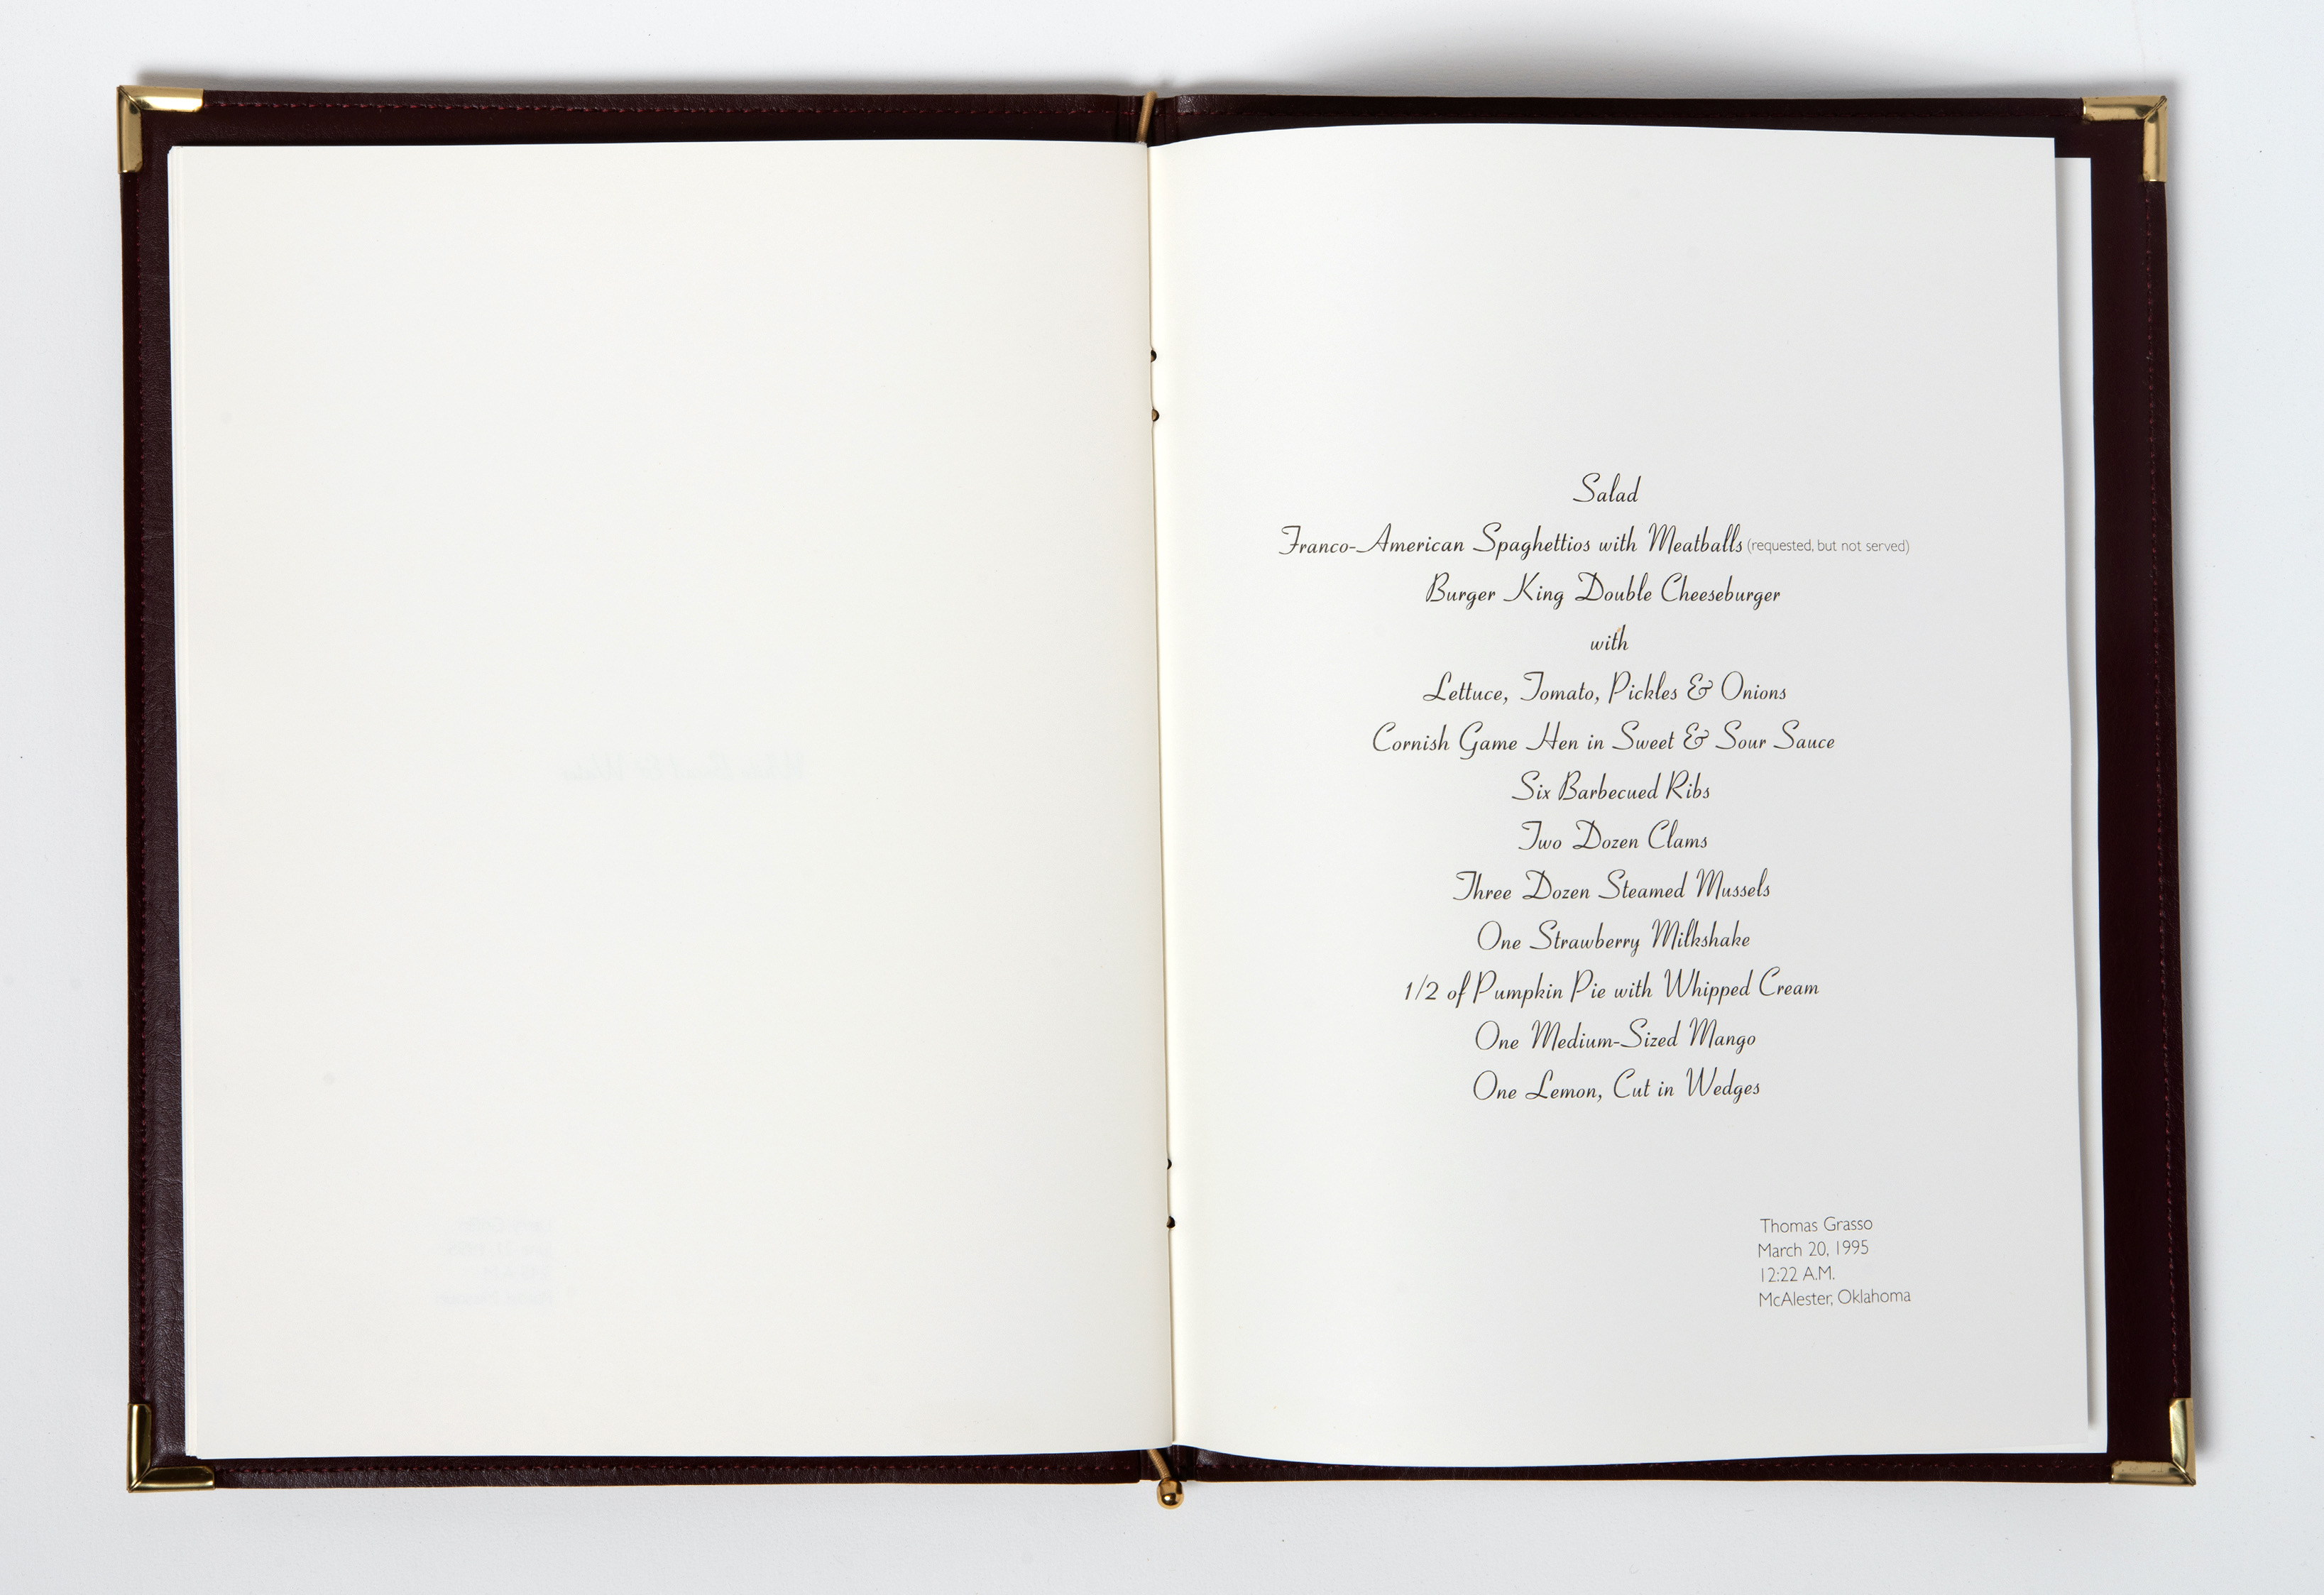 Salad
Franco-American Spaghettios with Meatballs (requested, but not served)
Burger King Double Cheeseburger
with
Lettuce, Tomato, Pickles & Onions
Cornish Game Hen in Sweet & Sour Sauce
Six Barbecued Ribs
Two Dozen Clams
Three Dozen Steamed Mussels
One Strawberry Milkshake
1/2 of Pumpkin Pie with Whipped Cream
One Medium-Sized Mango
One Lemon, Cut in Wedges
Thomas Grasso
March 20, 1995
12:22 A.M.
McAlester, Oklahoma